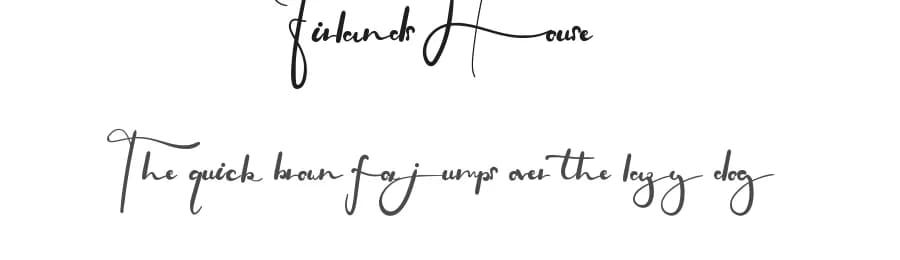 Firlands House
The quick brown fox jumps over the lazy dog